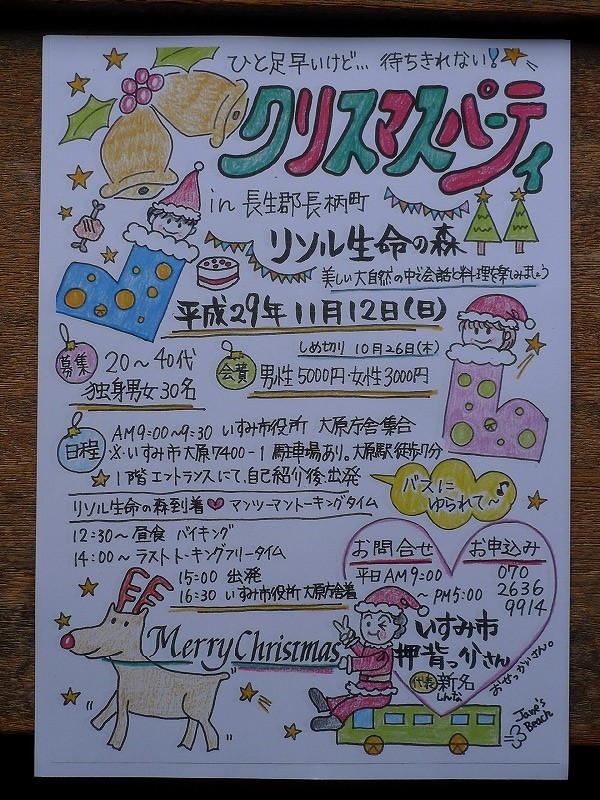 ひと足早いけど… 待ちきれない!
クリスマスパーティ
in 長生郡長柄町
リソル生命の森
美しい大自然の中で会話と料理を楽しみましょう
平成29年11月12日(日)
しめ切り 10月26日(木)
募集 20〜40代
独身男女30名
会費 男性5000円・女性3000円
日程 AM9:00〜9:30 いすみ市役所 大原庁舎集合
※・いすみ市大原7400-1 駐車場あり。大原駅徒歩7分
★1階エントランスにて、自己紹介後、出発
バスにゆられて〜♪
リソル生命の森到着♥マンツーマントーキングタイム
12:30〜昼食 バイキング
14:00〜ラストトーキングフリータイム
15:00 出発
16:30 いすみ市役所大原庁舎着
お問合せ お申込み
平日AM9:00
〜PM5:00
070
2636
9914
いすみ市
押背っ介さん
おせっかいさん。
代表 新名
しんな
Merry Christmas
Jane's
Beach